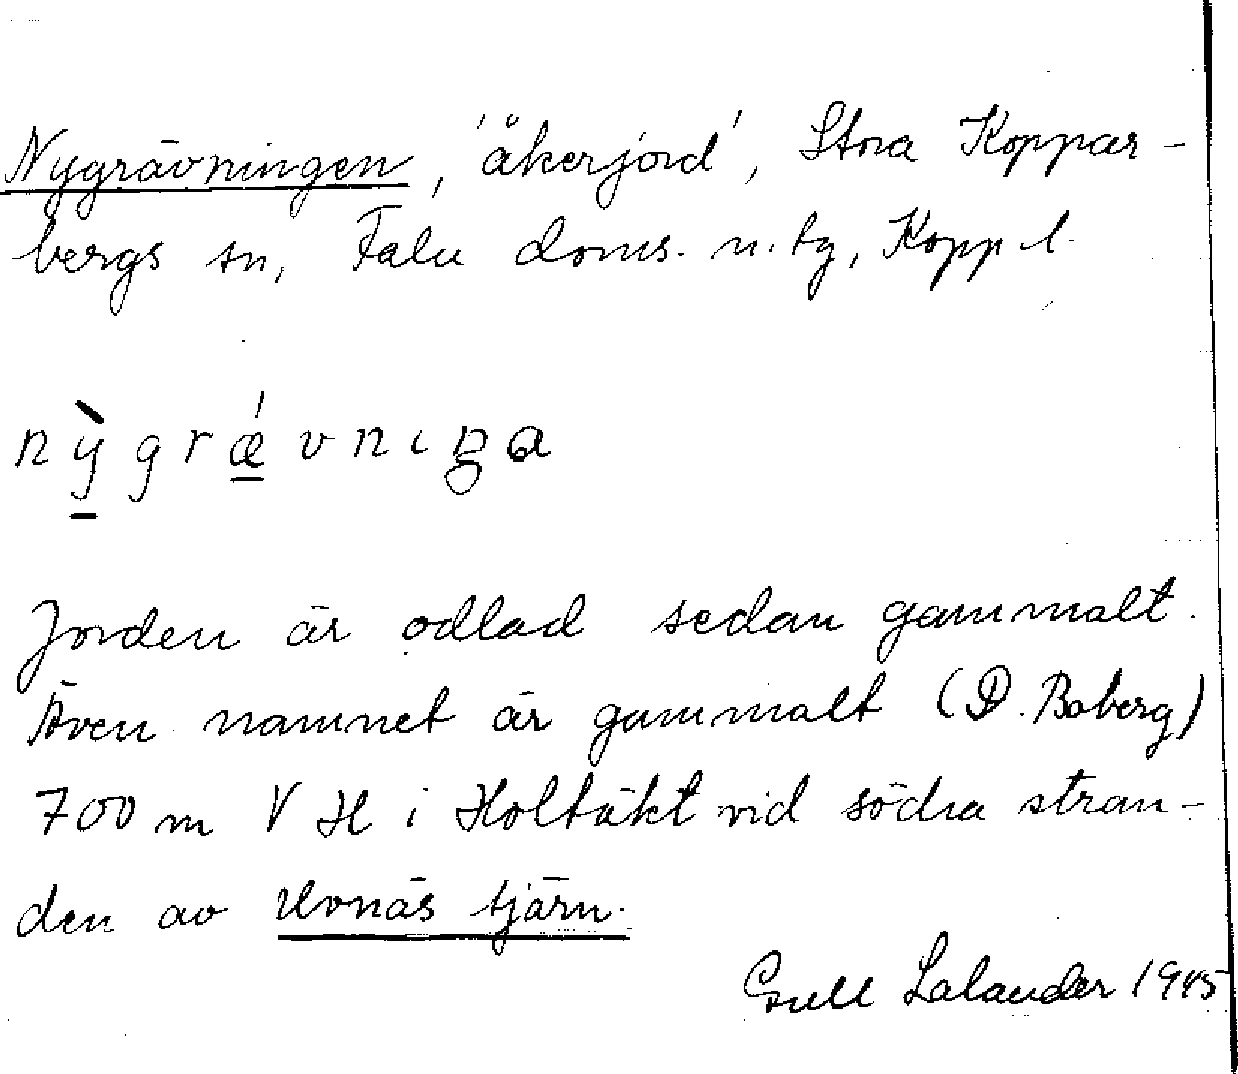 Nygrävningen, 'åkerjord', Stora Koppar-
bergs sn, Falu doms. n. tg, Kopp l.
nỳgrǽvnıŋa
Jorden är odlad sedan gammalt.
Även namnet är gammalt (D. Boberg)
700 m V H i Holtäkt vid södra stran-
den av Uvnäs tjärn.
Gull Lalander 1945